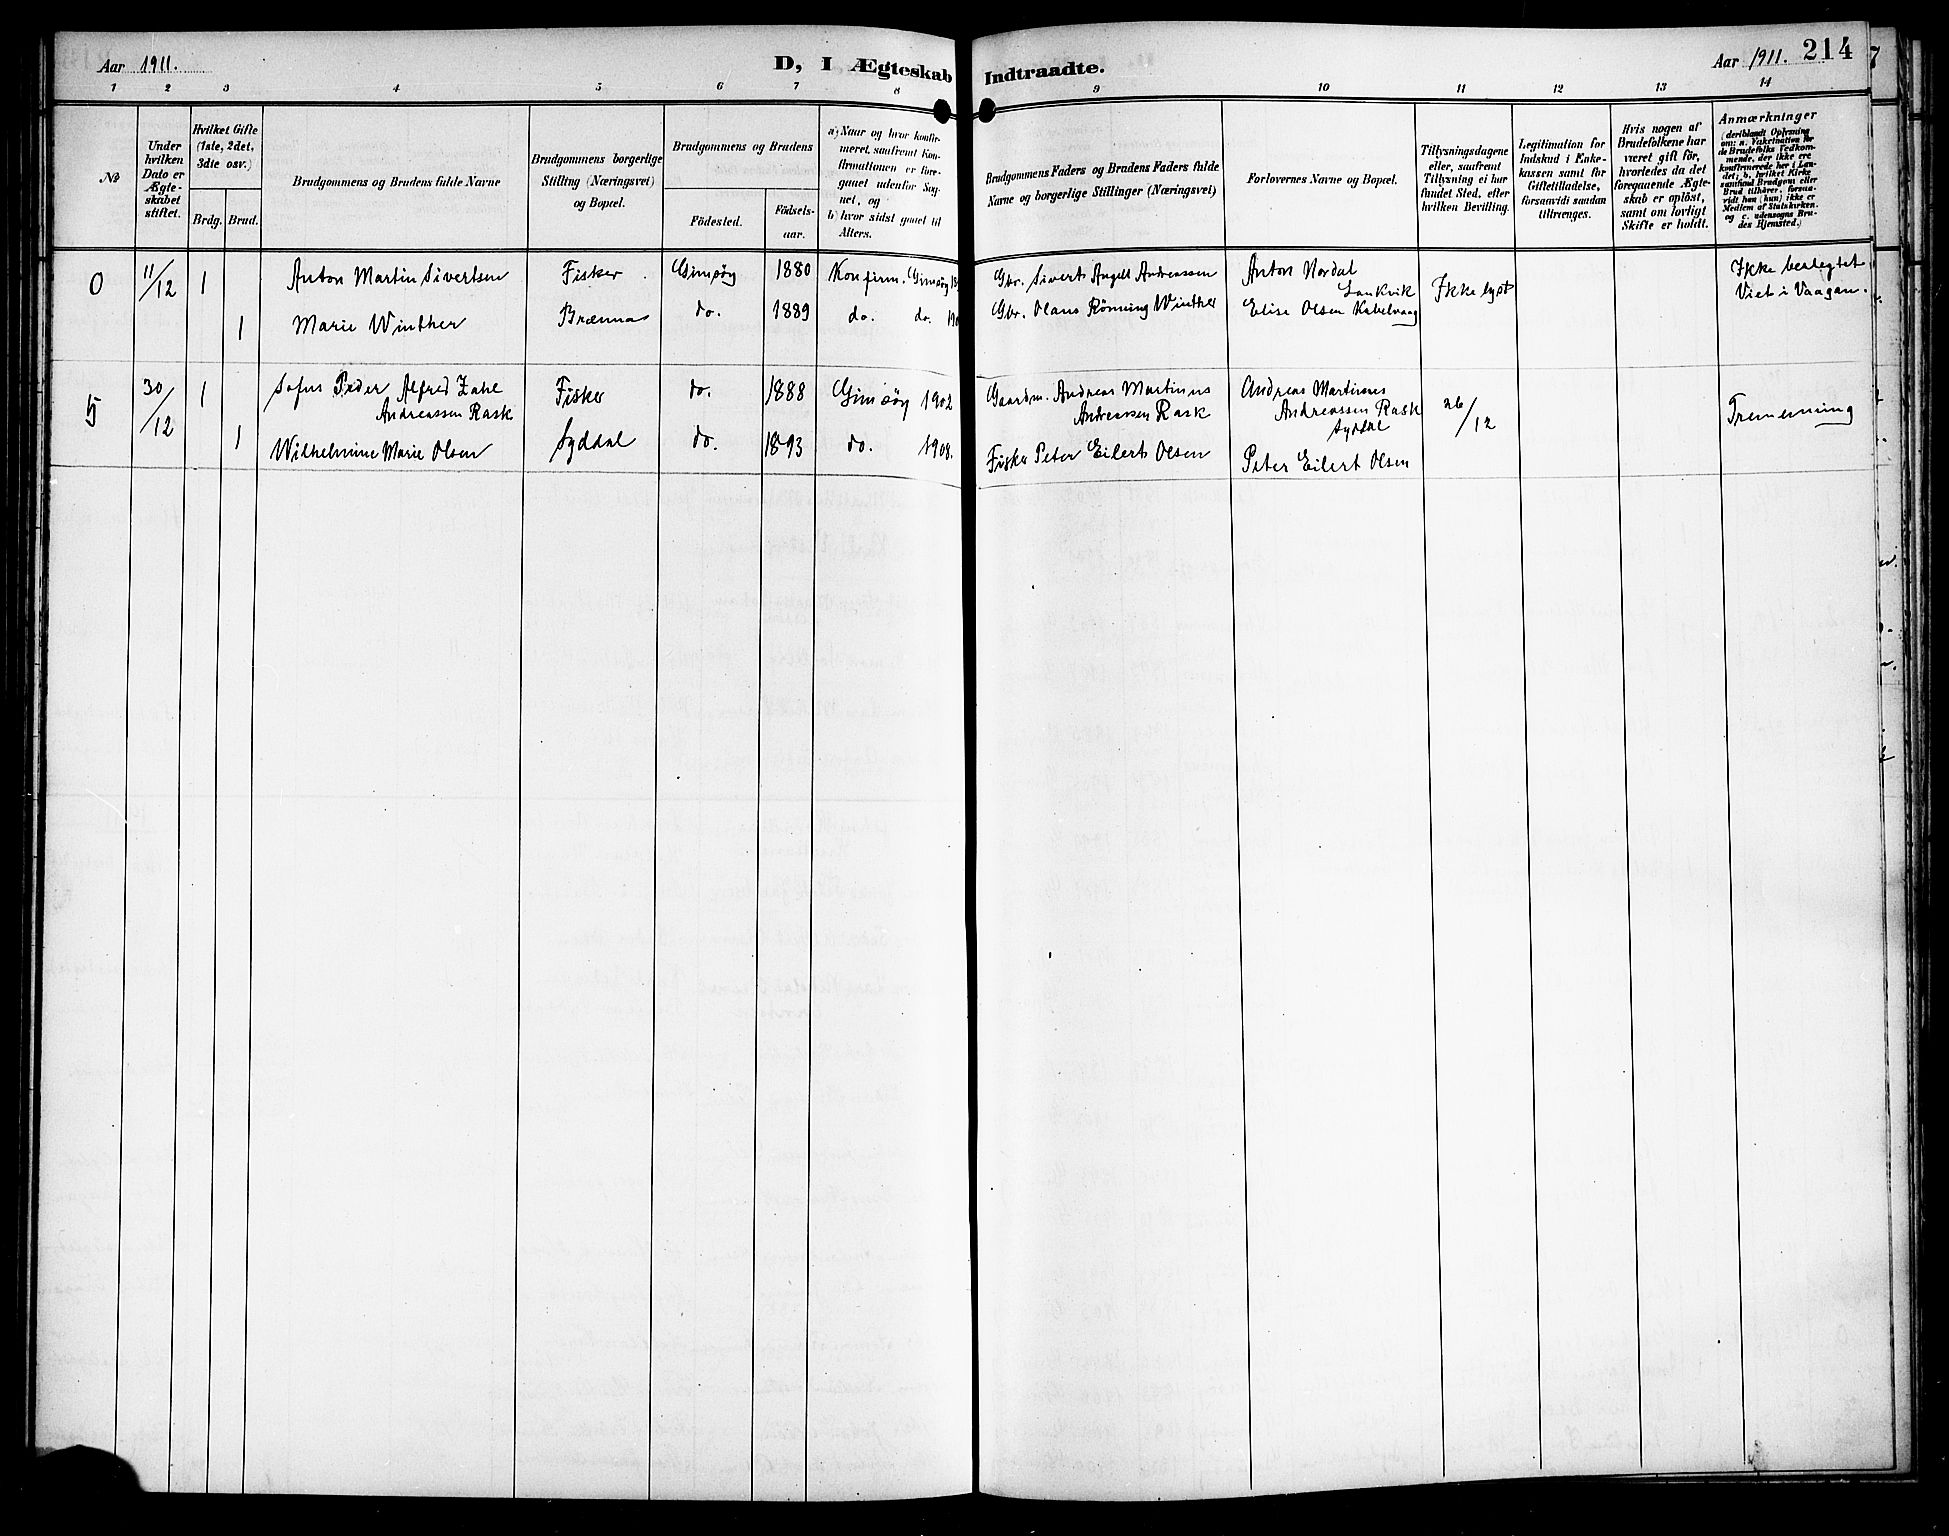 Aar 1911.
D, I Ægteskab Indtraadte.
Aar 1911. 214
1 2 3 4 5 6 7 8 9 10 11 12 13 14
No
Under hvilken Dato er Ægteskabet stiftet.
Hvilket Gifte (1ste, 2det, 3die osv.)
Brdg. Brud.
Brudgommens og Brudens fulde Navne
Brudgommens borgerlige Stilling (Næringsvei) og Bopæl.
Brudgommens og Brudens
Födested.
Födselsaar.
a) Naar og hvor konfirmeret, saafremt Konfirmationen er foregaaet udenfor Sognet, og
b) hvor sidst gaaet til Alters.
Brudgommens Faders og Brudens Faders fulde Navne og borgerlige Stillinger (Næringsvei)
Forlovernes Navne og Bopæl.
Tillysningsdagene eller, saafremt Tillysning ei har fundet Sted, efter hvilken Bevilling.
Legitimation for Indskud i Enkekassen samt for Giftetilladelse, forsaavidt saadan tiltrænges.
Hvis nogen af Brudefolkene har været gift för, hvorledes da det foregaaende Ægteskab er oplöst, samt om lovligt Skifte er holdt.
Anmærkninger
(deriblandt Oplysning om: a. Vakcination for de Brudefolks Vedkommende, der ikke ere konfirmerede her i Landet; b. hvilket Kirkesamfund Brudgom eller Brud tilhörer, forsaavidt han (hun) ikke er Medlem af Statskirken, og c. udensogns Brudes Hjemsted.)
0 11/12 1 Anton Martin Sivertsen Fisker Gimsöy 1880 Konfirm. Gimsöy Gbr. Sivert Angell Andreassen Anton Nordal Ikke lyst Ikke beslegtet
1 Marie Winther Brænna do. 1889 do. do. Gbr. Olaus Rönning Winther Elise Olsen Kabelvaag Viet i Vaagan.
5 30/12 1 Sofus Peder Alfred Zahl Fisker do. 1888 Gimsöy 1902 Gaardm. Andreas Martinus Andreas Martinus 26/12
Andreassen Rask Andreassen Rask Andreassen Rask Tremenning
Syddal
1 Wilhelmine Marie Olsen Syddal do. 1893 do. 1908. Fisker Peter Eilert Olsen Peter Eilert Olsen